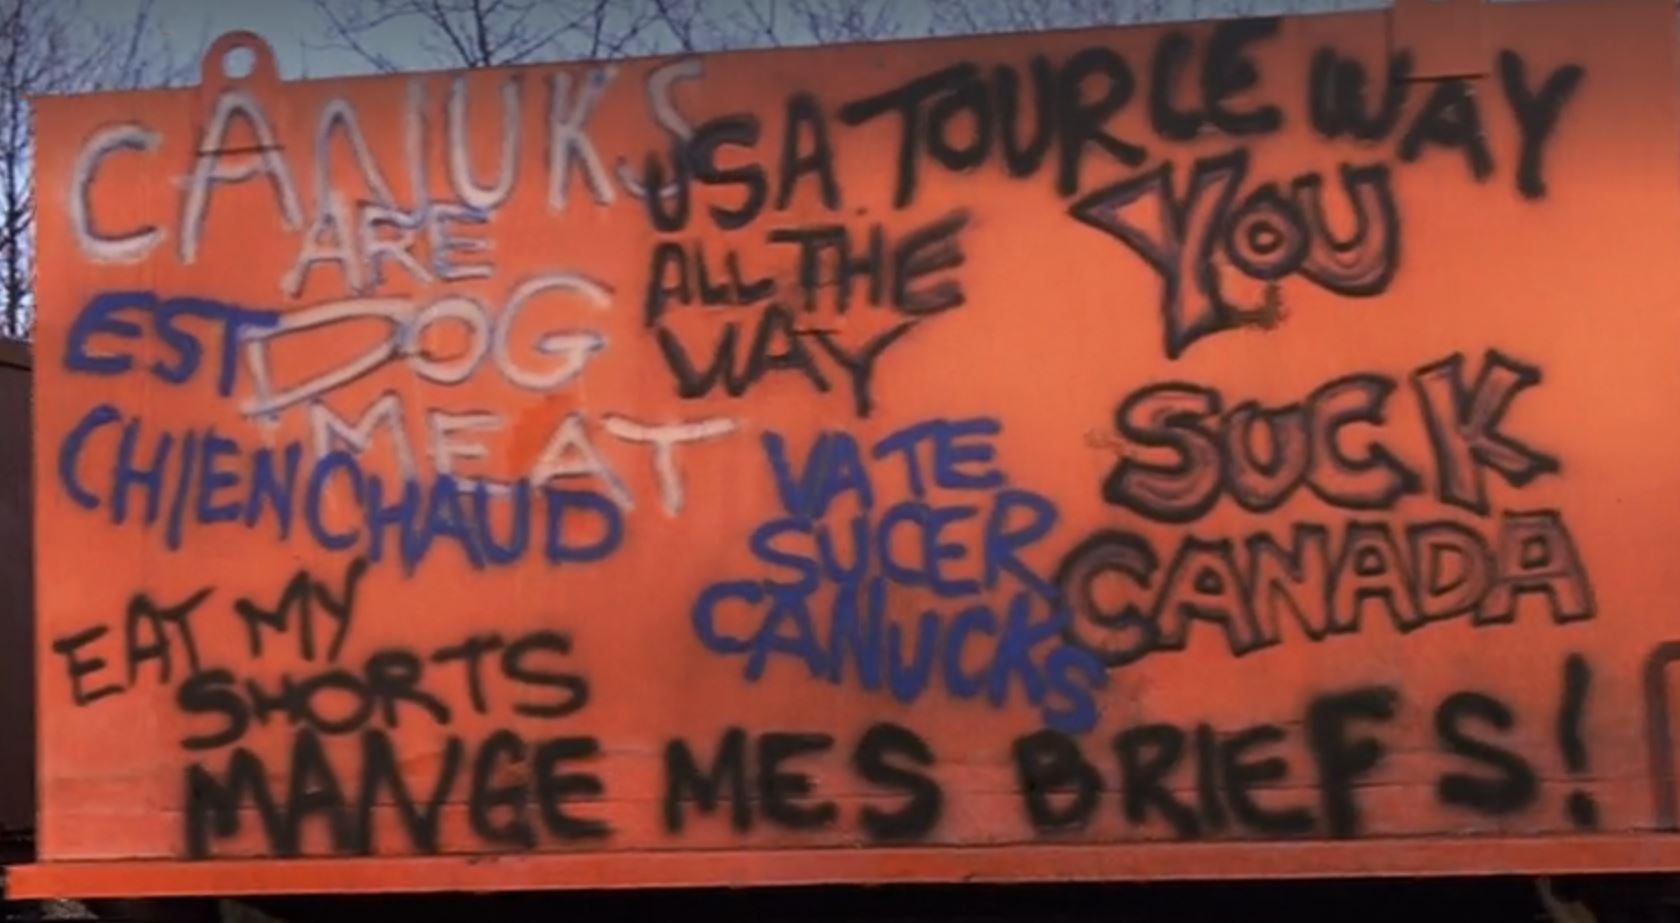 CANUKS
ARE
DOG
MEAT
EST
CHIEN CHAUD
USA TOUR LE WAY
ALL THE
WAY
YOU
SUCK
CANADA
VA TE
SUCER
CANUCKS
EAT MY
SHORTS
MANGE MES BRIEFS!